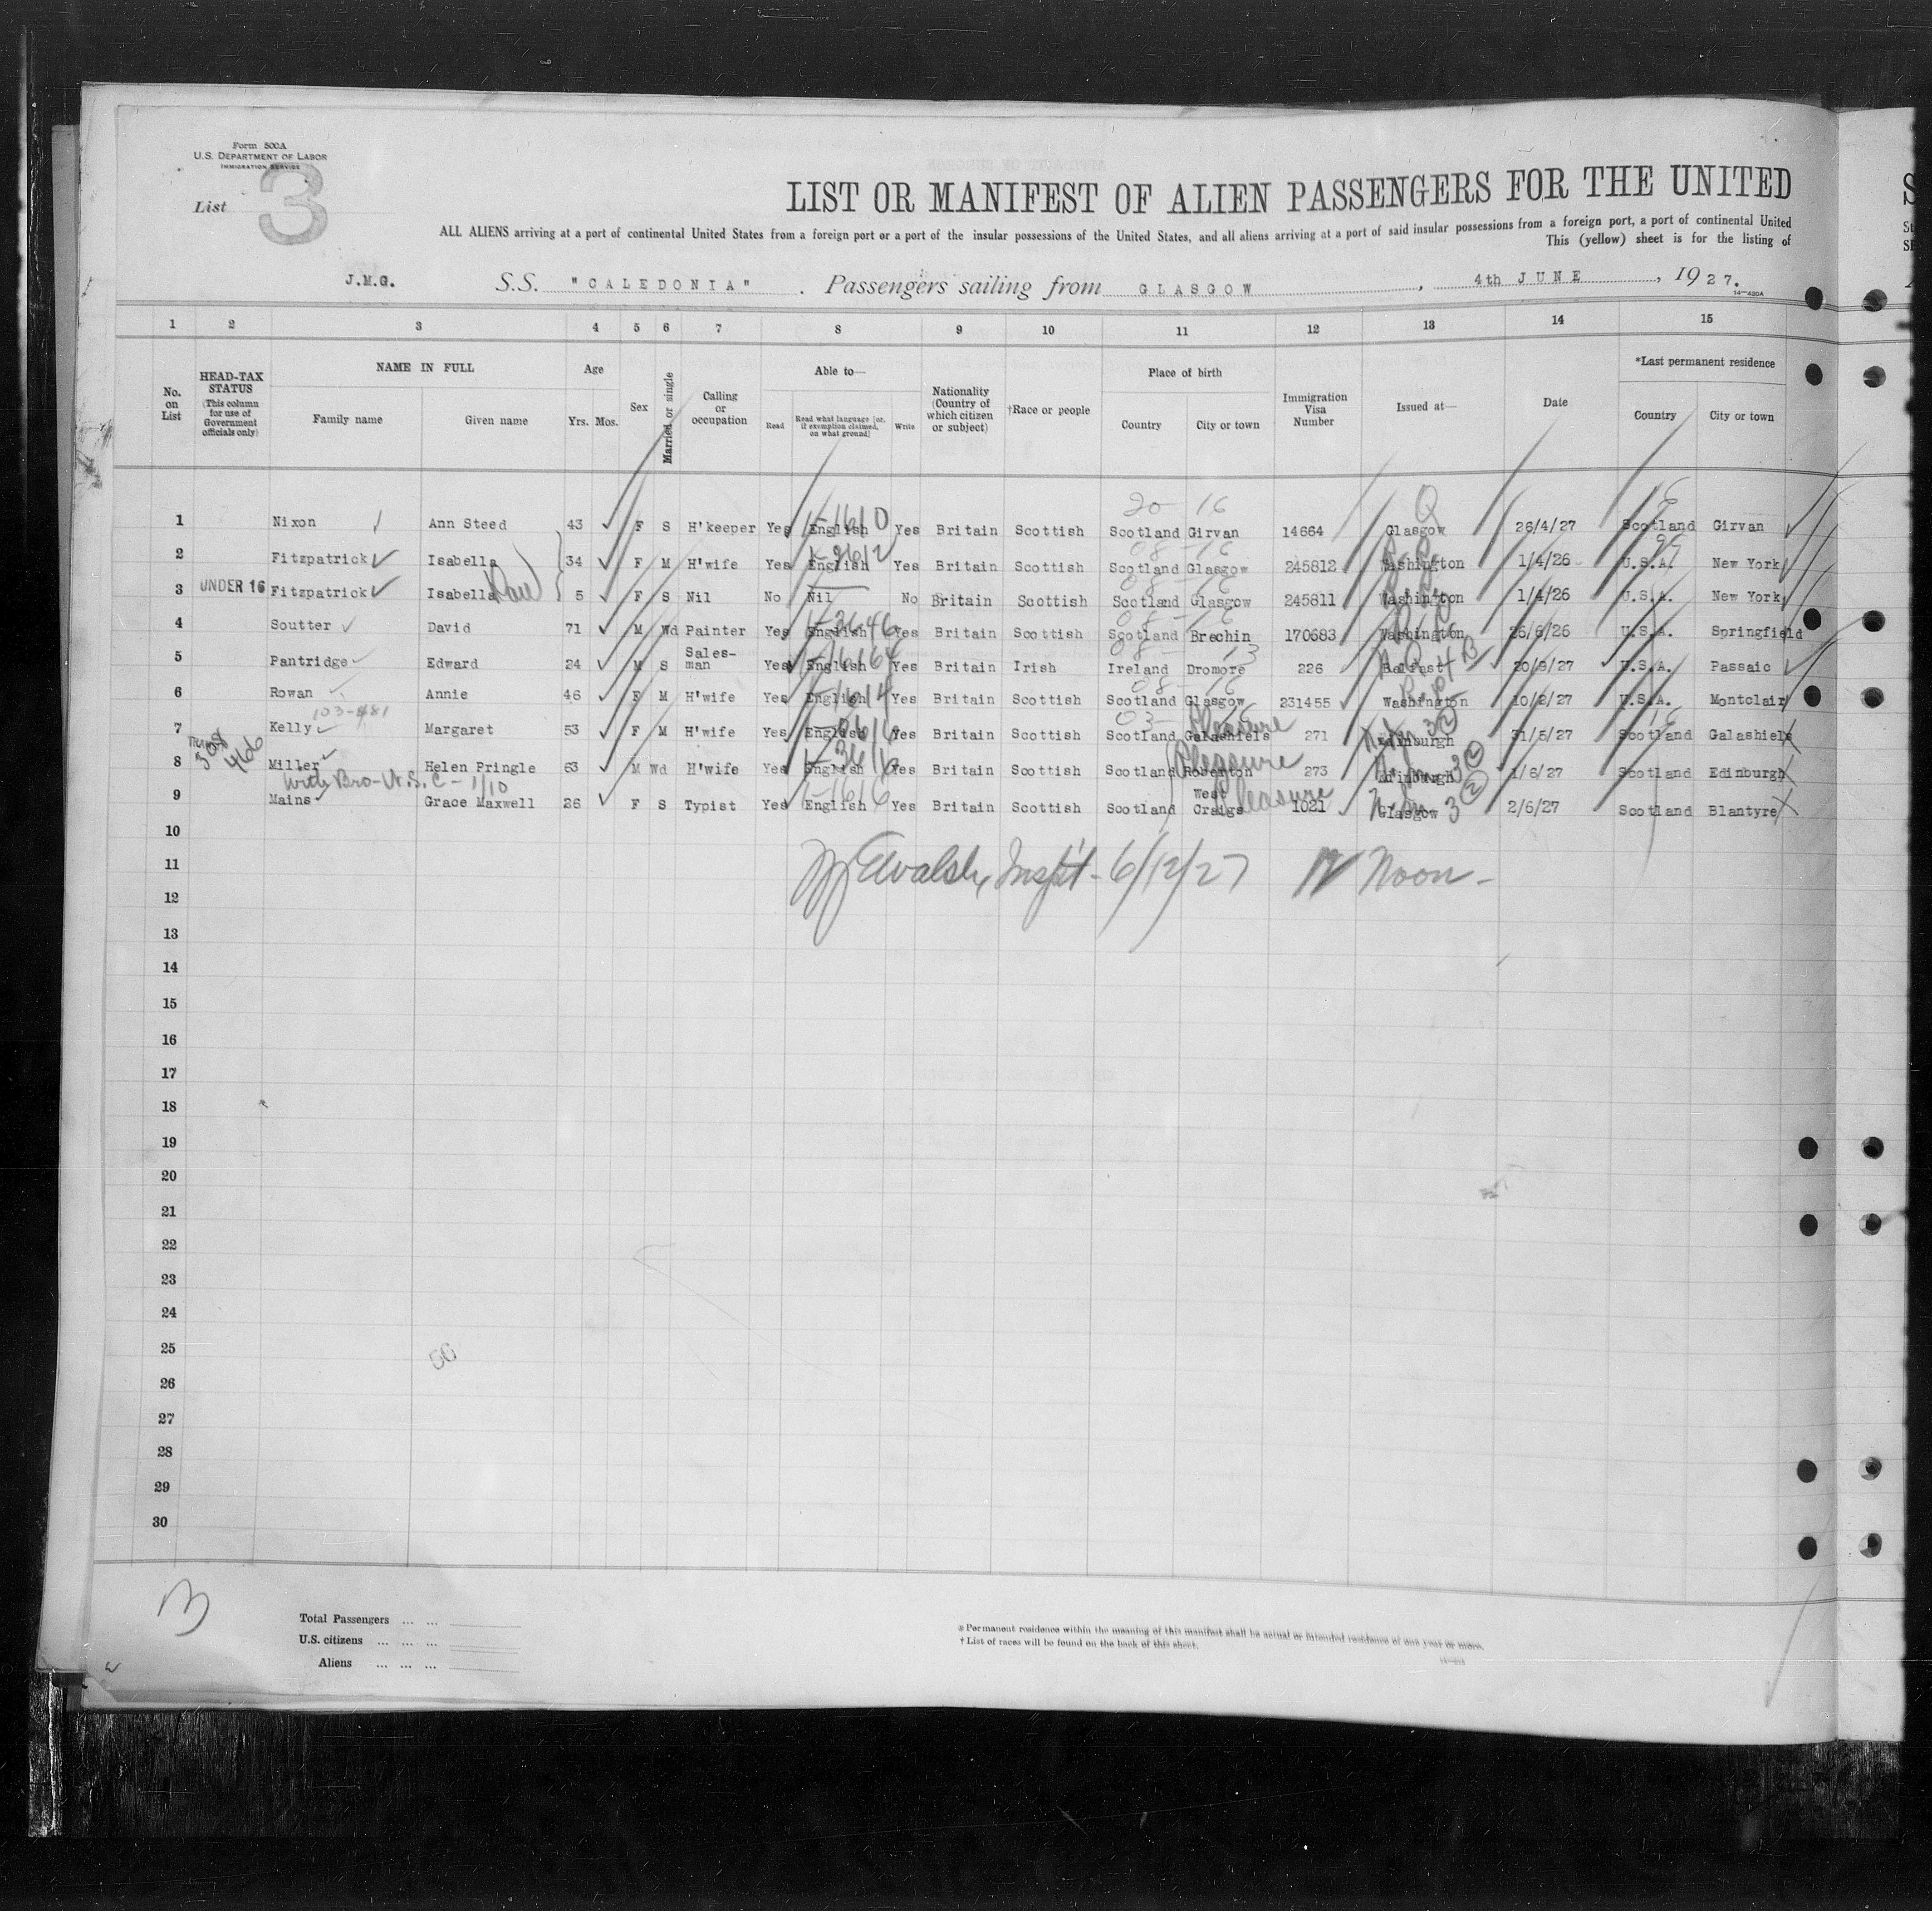 Form 500A
U.S. DEPARTMENT OF LABOR
IMMIGRATION SERVICE
List 3
LIST OR MANIFEST OF ALIEN PASSENGERS FOR THE UNITED
ALL ALIENS arriving at a port of continental United States from a foreign port or a port of the insular possessions of the United States, and all aliens arriving at a port of said insular possessions from a foreign port, a port of continental United
This (yellow) sheet is for the listing of
J.M.G. S.S. "CALEDONIA" . Passengers sailing from GLASGOW , 4th JUNE , 1927.
14-480A
1 2 3 4 5 6 7 8 9 10 11 12 13 14 15
No. on List
HEAD-TAX STATUS (This column for use of Government officials only)
NAME IN FULL Family name Given name
Age Yrs. Mos.
Sex
Married or single
Calling or occupation
Able to— Read Read what language (or, if exemption claimed, on what ground) Write
Nationality (Country of which citizen or subject)
†Race or people
Place of birth Country City or town
Immigration Visa Number
Issued at—
Date
*Last permanent residence Country City or town
20-16 Q
1 Nixon Ann Steed 43 F S H'keeper Yes English Yes Britain Scottish Scotland Girvan 14664 Glasgow 26/4/27 Scotland Girvan
2 Fitzpatrick Isabella 34 F M H'wife Yes English Yes Britain Scottish Scotland Glasgow 245812 Washington 1/4/26 U.S.A. New York
3 UNDER 16 Fitzpatrick Isabella 5 F S Nil No Nil No Britain Scottish Scotland Glasgow 245811 Washington 1/4/26 U.S.A. New York
4 Soutter David 71 M Wd Painter Yes English Yes Britain Scottish Scotland Brechin 170683 Washington 26/6/26 U.S.A. Springfield
5 Pantridge Edward 24 M S Sales-man Yes English Yes Britain Irish Ireland Dromore 226 Belfast 20/9/27 U.S.A. Passaic
6 Rowan Annie 46 F M H'wife Yes English Yes Britain Scottish Scotland Glasgow 231455 Washington 10/2/27 U.S.A. Montclair
103-481
7 Kelly Margaret 53 F M H'wife Yes English Yes Britain Scottish Scotland Galashiels Pleasure 271 Edinburgh 31/5/27 Scotland Galashiels
8 Miller Helen Pringle 63 M Wd H'wife Yes English Yes Britain Scottish Scotland Roberton Pleasure 273 Edinburgh 1/6/27 Scotland Edinburgh
with Bro-U.S.C- 1/10
9 Mains Grace Maxwell 26 F S Typist Yes English Yes Britain Scottish Scotland West Craigs Pleasure 1021 Glasgow 2/6/27 Scotland Blantyre
10
11 Walsh, Insp't- 6/12/27 12 Noon-
12
13
14
15
16
17
18
19
20
21
22
23
24
25
26
27
28
29
30
Total Passengers ... ...
U.S. citizens ... ... ...
Aliens ... ... ...
* Permanent residence within the meaning of this manifest shall be actual or intended residence of one year or more.
† List of races will be found on the back of this sheet.